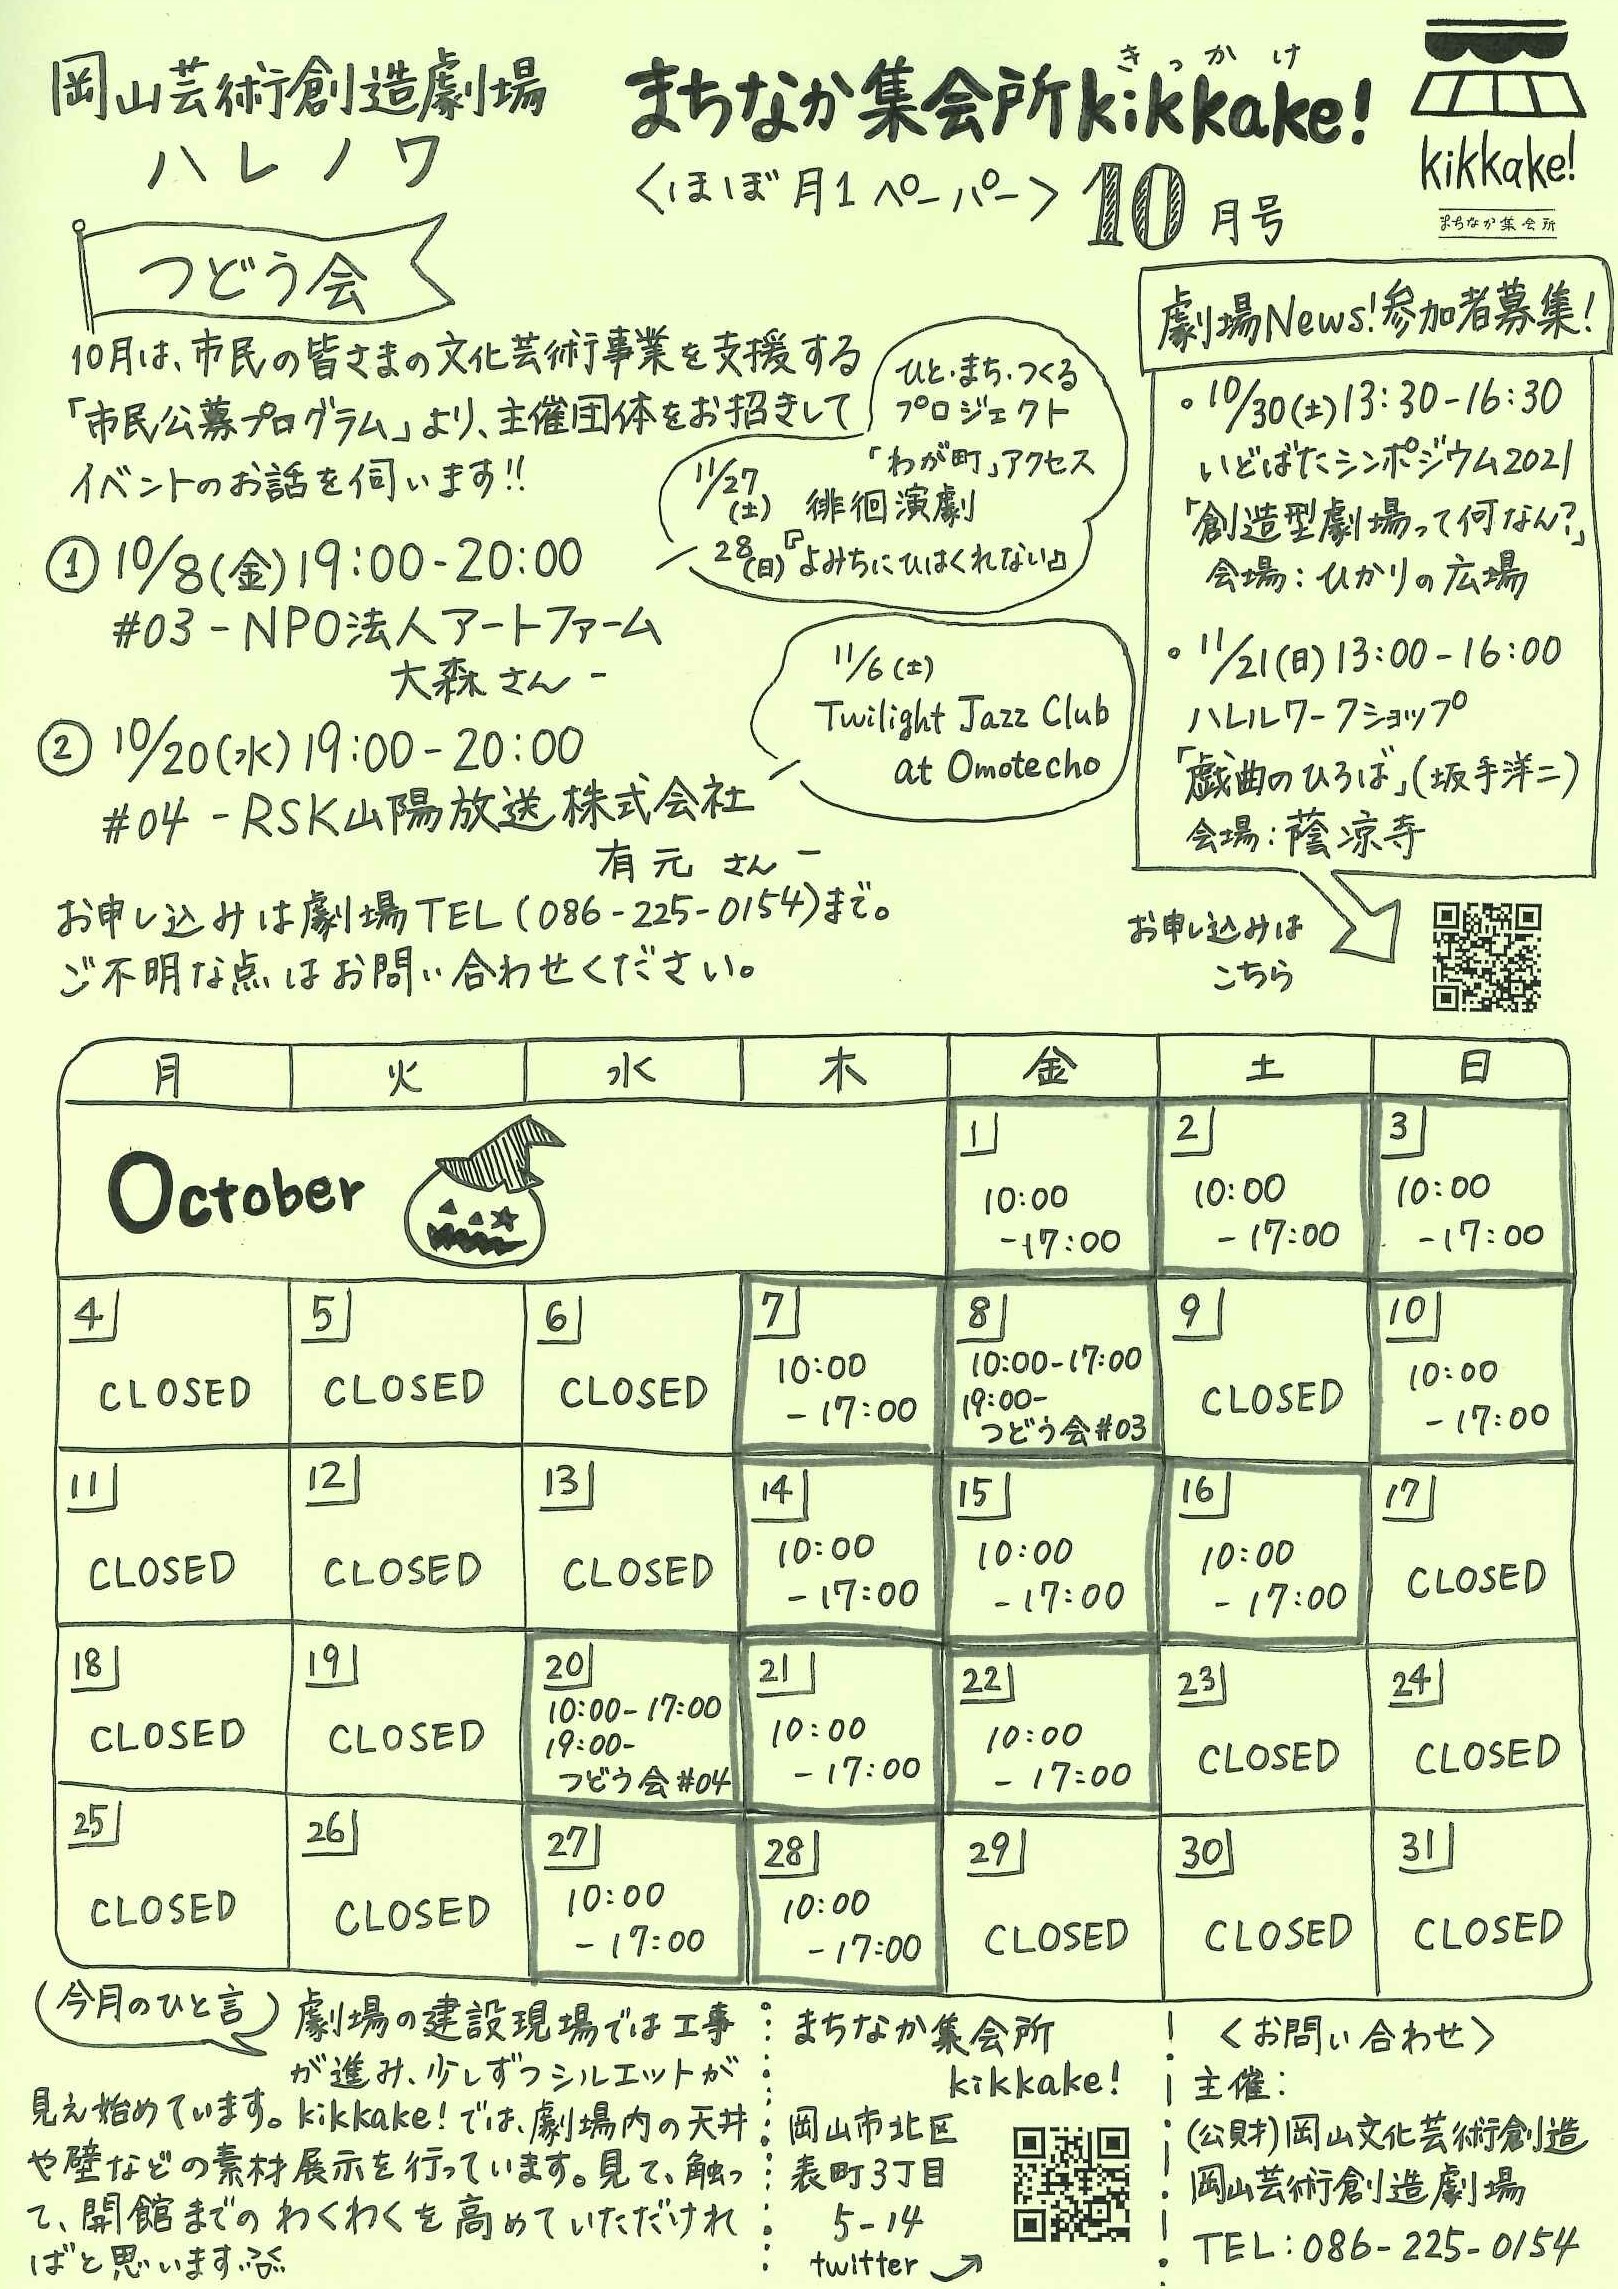 岡山芸術創造劇場
ハレノワ
きっかけ
まちなか集会所kikkake!
〈ほぼ月1ペーパー〉10月号
kikkake!
まちなか集会所
つどう会
10月は、市民の皆さまの文化芸術事業を支援する
「市民公募プログラム」より、主催団体をお招きして
イベントのお話を伺います!!
① 10/8(金)19:00-20:00
#03-NPO法人アートファーム
大森さん-
ひと・まち・つくる
プロジェクト
「わが町」アクセス
11/27(土) 徘徊演劇
28(日)『よみちにひはくれない』
② 10/20(水)19:00-20:00
#04-RSK山陽放送株式会社
有元さん-
11/6(土)
Twilight Jazz Club
at Omotecho
お申し込みは劇場TEL(086-225-0154)まで。
ご不明な点はお問い合わせください。
劇場News!参加者募集!
・10/30(土)13:30-16:30
いどばたシンポジウム2021
「創造型劇場って何なん?」
会場:ひかりの広場
・11/21(日)13:00-16:00
ハレルワークショップ
「戯曲のひろば」(坂手洋二)
会場:蔭凉寺
お申し込みは
こちら
月 火 水 木 金 土 日
October
1
10:00
-17:00
2
10:00
-17:00
3
10:00
-17:00
4
CLOSED
5
CLOSED
6
CLOSED
7
10:00
-17:00
8
10:00-17:00
19:00-
つどう会#03
9
CLOSED
10
10:00
-17:00
11
CLOSED
12
CLOSED
13
CLOSED
14
10:00
-17:00
15
10:00
-17:00
16
10:00
-17:00
17
CLOSED
18
CLOSED
19
CLOSED
20
10:00-17:00
19:00-
つどう会#04
21
10:00
-17:00
22
10:00
-17:00
23
CLOSED
24
CLOSED
25
CLOSED
26
CLOSED
27
10:00
-17:00
28
10:00
-17:00
29
CLOSED
30
CLOSED
31
CLOSED
(今月のひと言)
劇場の建設現場では工事
が進み、少しずつシルエットが
見え始めています。kikkake!では、劇場内の天井
や壁などの素材展示を行っています。見て、触っ
て、開館までのわくわくを高めていただけれ
ばと思います
まちなか集会所
kikkake!
岡山市北区
表町3丁目
5-14
twitter
〈お問い合わせ〉
主催:
(公財)岡山文化芸術創造
岡山芸術創造劇場
TEL:086-225-0154